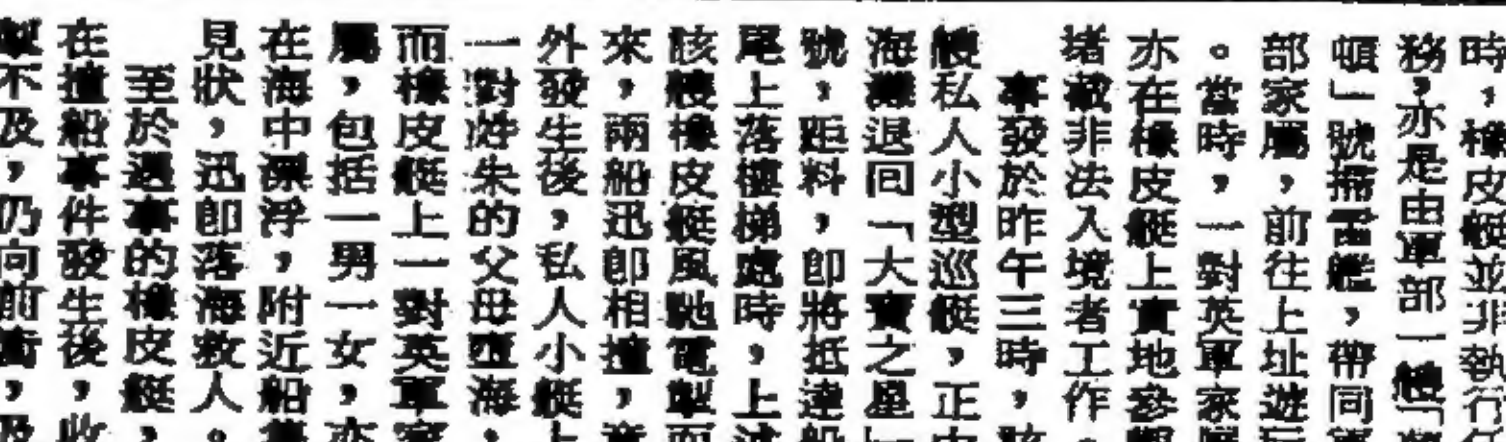 時，橡皮艇並非執行
務，亦是由軍部一艘
頓」號掃雷艦，帶同
部家屬，前往上址遊玩
。當時，一對英軍家屬
亦在橡皮艇上實地參觀
堵截非法入境者工作。
事發於昨午三時，該
艘私人小型巡艇，正由
海灘退回「大寶之星」
號，距料，即將抵達船
尾上落樓梯處時，上述
該艘橡皮艇風馳電掣而
來，兩船迅即相撞，意
外發生後，私人小艇上
一對游朱的父母墮海，
而橡皮艇上一對英軍家
屬，包括一男一女，亦
在海中漂浮，附近船隻
見狀，迅即落海救人。
至於遇事的橡皮艇，
在撞船事件發生後，收
掣不及，仍向前衝，及